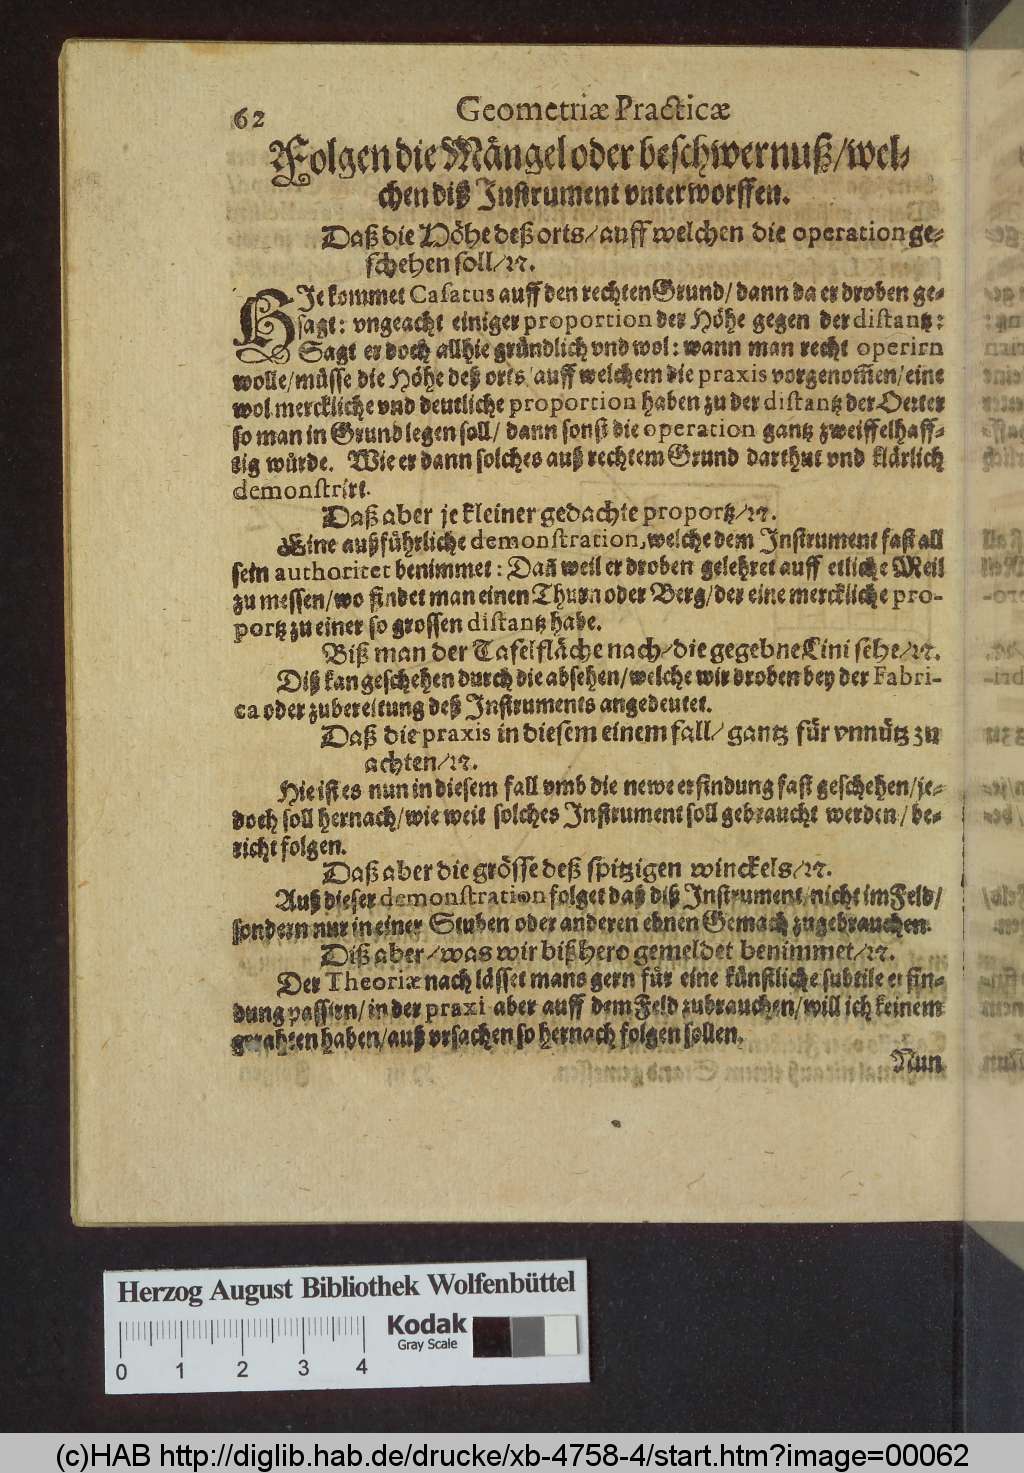 62 Geometriæ Practicæ
Folgen die Mängel oder beschwernuß/wel-
chen diß Instrument vnterworffen.
Daß die Höhe deß orts/auff welchen die operation ge-
schehen soll/ꝛc.
HIe kommet Casatus auff den rechten Grund/ dann da er droben ge-
sagt: vngeacht einiger proportion der Höhe gegen der distantz:
Sagt er doch allhie gründlich vnd wol: wann man recht operirn
wolle/müsse die Höhe deß orts/auff welchem die praxis vorgenom̃en/eine
wol merckliche vnd deutliche proportion haben zu der distantz der Oerter
so man in Grund legen soll/ dann sonst die operation gantz zweiffelhaff-
tig würde. Wie er dann solches auß rechtem Grund darthut vnd klärlich
demonstrirt.
Daß aber je kleiner gedachte proportz/ꝛc.
Eine außführliche demonstration, welche dem Instrument fast all
sein authoritet benimmet: Dañ weil er droben gelehret auff etliche Meil
zu messen/wo findet man einen Thurn oder Berg/der eine merckliche pro-
portz zu einer so grossen distantz habe.
Biß man der Tafelfläche nach/die gegebne Lini sehe/ꝛc.
Diß kan geschehen durch die absehen/welche wir droben bey der Fabri-
ca oder zubereitung deß Instruments angedeutet.
Daß die praxis in diesem einem fall/ gantz für vnnütz zu
achten/ꝛc.
Hie ist es nun in diesem fall vmb die newe erfindung fast geschehen/je-
doch soll hernach/wie weit solches Instrument soll gebraucht werden/ be-
richt folgen.
Daß aber die grösse deß spitzigen winckels/ꝛc.
Auß dieser demonstration folget daß diß Instrument/nicht im Feld/
sondern nur in einer Stuben oder anderen ebnen Gemach zugebrauchen.
Diß aber/was wir bißhero gemeldet benimmet/ꝛc.
Der Theoriæ nach lässet mans gern für eine künstliche subtile erfin-
dung passirn/in der praxi aber auff dem Feld zubrauchen/will ich keinem
gerahten haben/auß vrsachen so hernach folgen sollen.
Nun
Herzog August Bibliothek Wolfenbüttel
Kodak
Gray Scale
0 1 2 3 4
(c)HAB http://diglib.hab.de/drucke/xb-4758-4/start.htm?image=00062